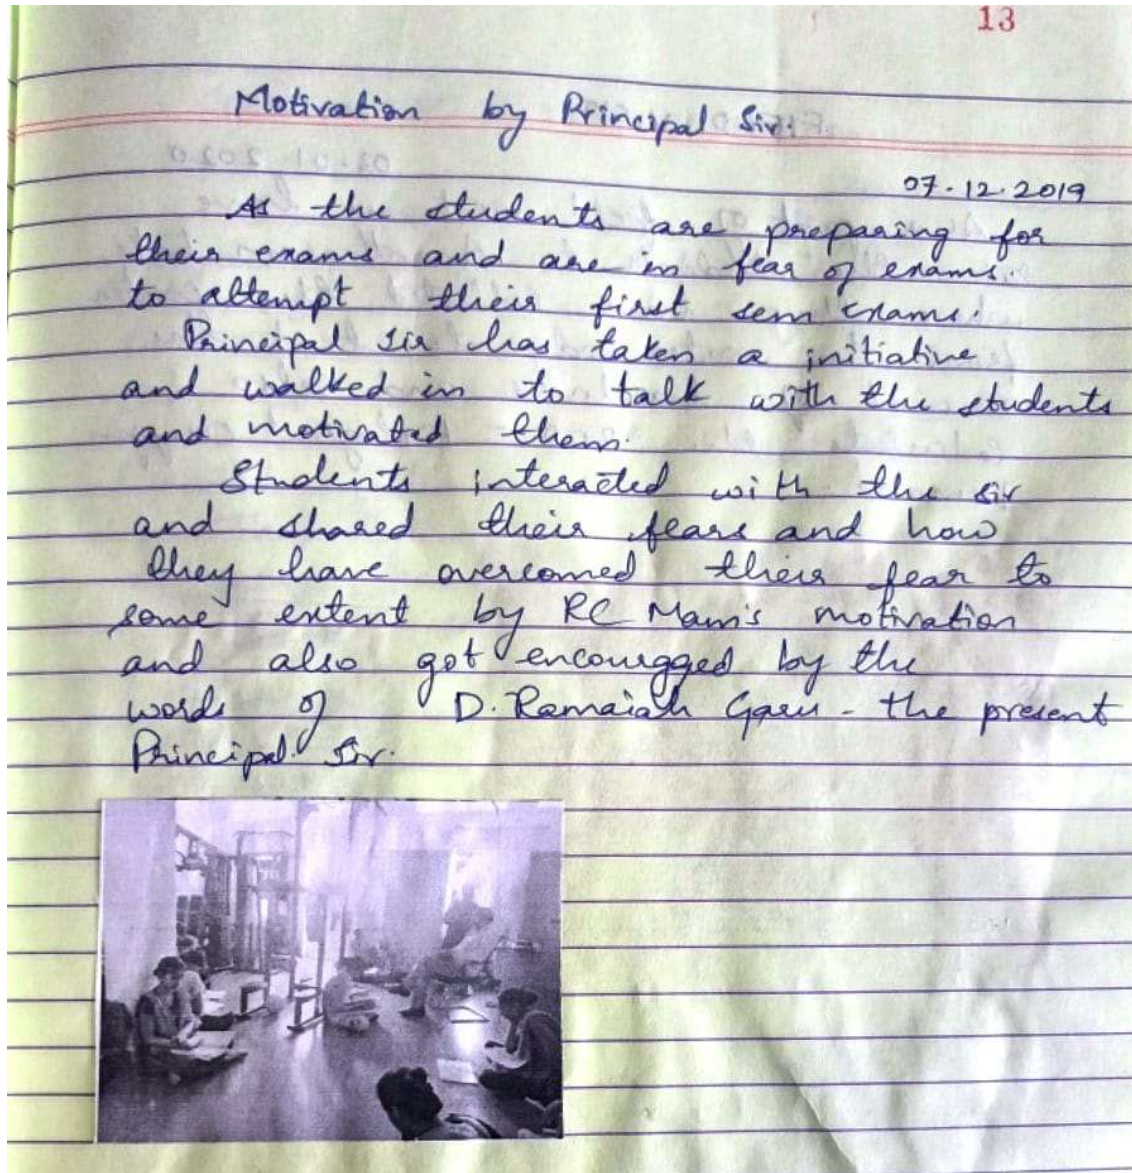 13
Motivation by Principal Sir.
07.12.2019
As the students are preparing for
their exams and are in fear of exams.
to attempt their first sem exams.
Principal sir has taken a initiative
and walked in to talk with the students
and motivated them.
Students interacted with the sir
and shared their fears and how
they have overcomed their fear to
some extent by RC Mam's motivation
and also got encouragged by the
words of D. Ramaiah Garu - the present
Principal Sir.